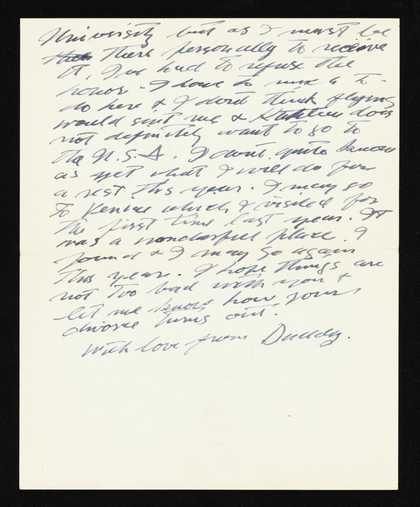 University but as I must be
there personally to receive
it, I've had to refuse the
honor - I have to much to
do here & I don't think flying
would suit me & does
not definitely want to go to
the U.S.A. I don't quite know
as yet what I will do for
a rest this year. I may go
to Kenya which I visited for
the first time last year. It
was a wonderful place I
found & I may go again
this year. I hope things are
not too bad with you &
let me know how your
divorce turns out.
With love from Daddy.